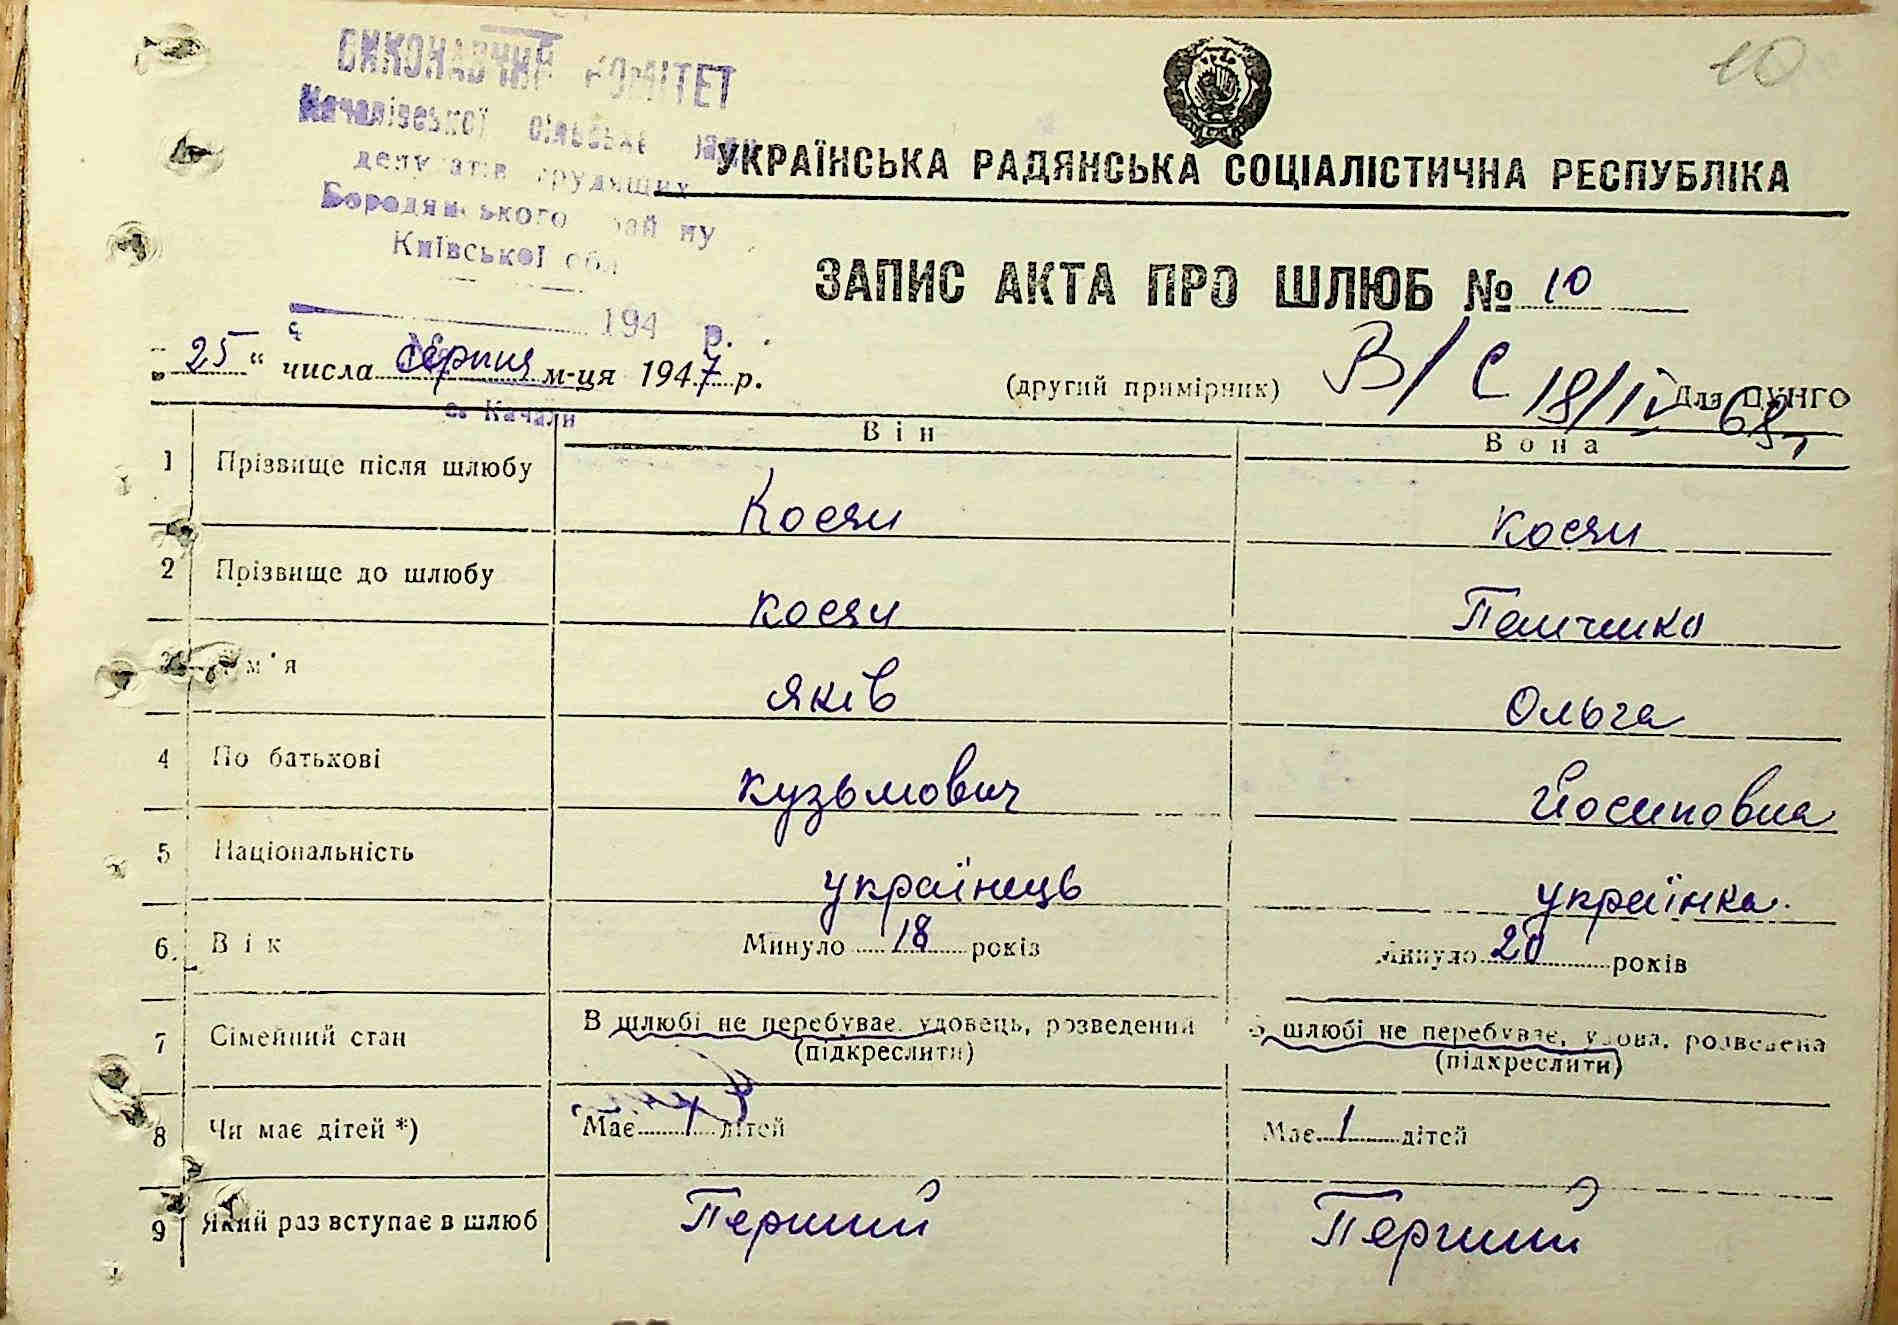 10
ВИКОНАВЧИЙ КОМІТЕТ
Качалівської сільської ради
депутатів трудящих
Бородянського району
Київської обл
194 р.
с. Качали
УКРАЇНСЬКА РАДЯНСЬКА СОЦІАЛІСТИЧНА РЕСПУБЛІКА
ЗАПИС АКТА ПРО ШЛЮБ № 10
„25“ числа серпня м-ця 1947 р.
(другий примірник)
В/С 18/IV 68р
Для ЦУНГО
Він Вона
1 Прізвище після шлюбу Косяк Косяк
2 Прізвище до шлюбу Косяк
3 Ім'я Яків Ольга
4 По батькові Кузьмович Йосиповна
5 Національність українець українка.
6. Вік Минуло 18 років Минуло 20 років
7 Сімейний стан В шлюбі не перебуває, удовець, розведений В шлюбі не перебуває, удова, розведена
(підкреслити) (підкреслити)
8 Чи має дітей *) Має 1 дітей Має 1 дітей
9 Який раз вступає в шлюб Перший Перший